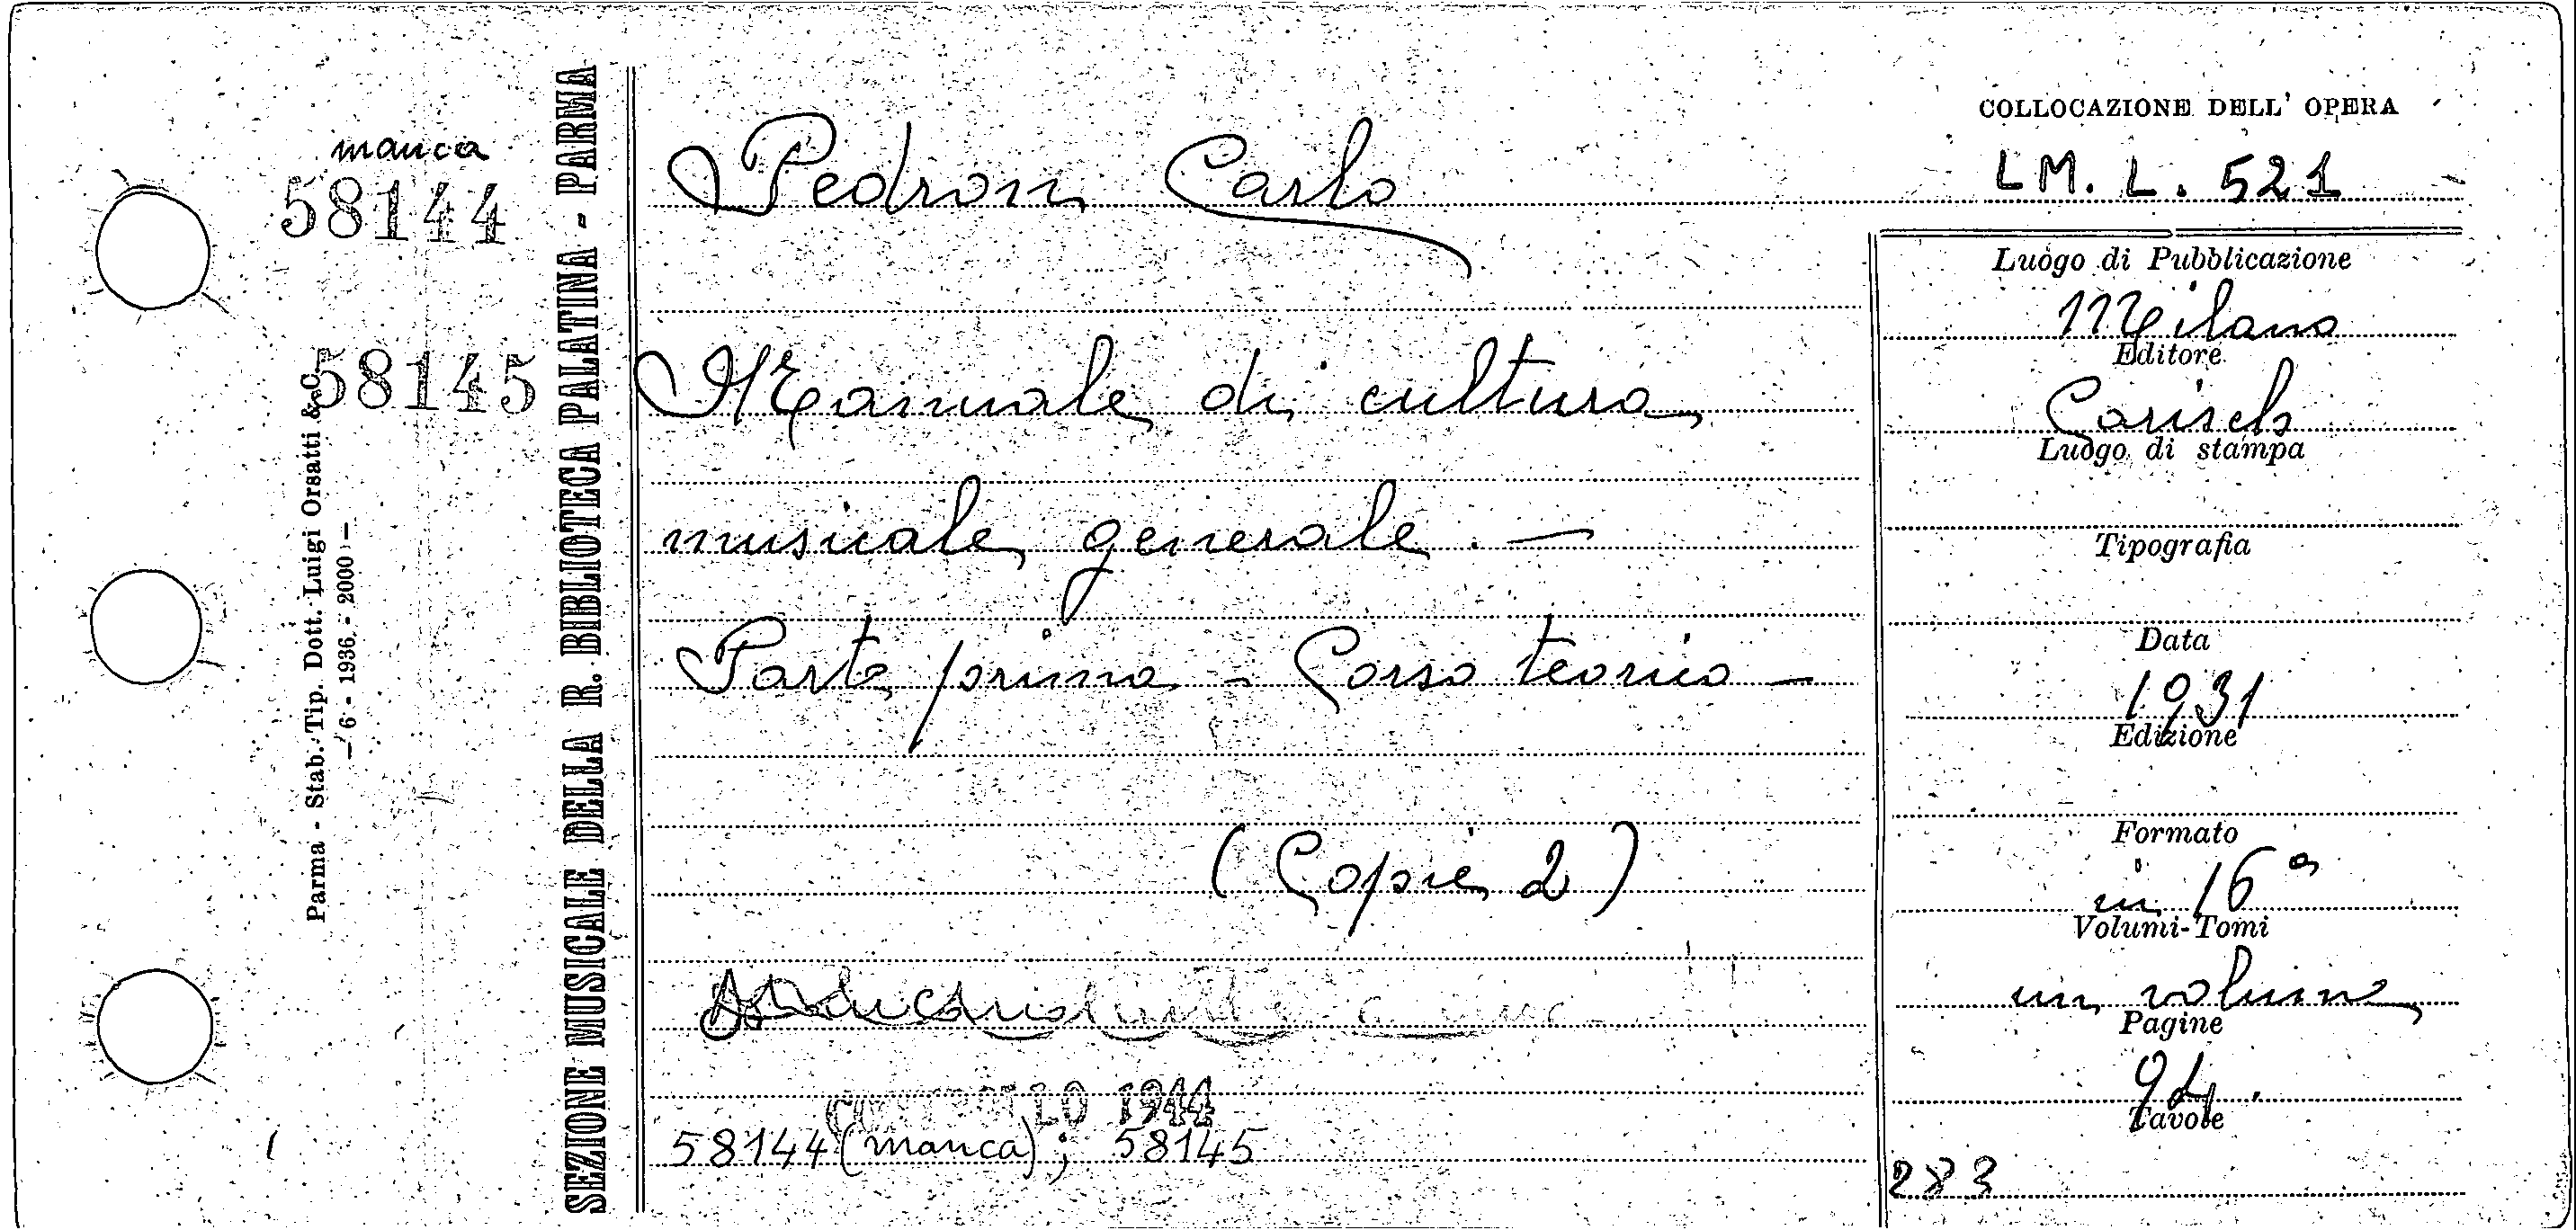 manca
58144
58145
Parma - Stab. Tip. Dott. Luigi Orsatti & C.
— 6 - 1936 - 2000 —
SEZIONE MUSICALE DELLA R. BIBLIOTECA PALATINA - PARMA
Pedron Carlo
Manuale di cultura
musicale generale. —
Parte prima - Corso teorico -
(Copie 2)
CONTROLLO 1944
58144 (manca); 58145
COLLOCAZIONE DELL' OPERA
LM. L. 521
Luogo di Pubblicazione
Milano
Editore
Carisch
Luogo di stampa
Tipografia
Data
1931
Edizione
Formato
in 16°
Volumi-Tomi
un volume
Pagine
94.
Tavole
283